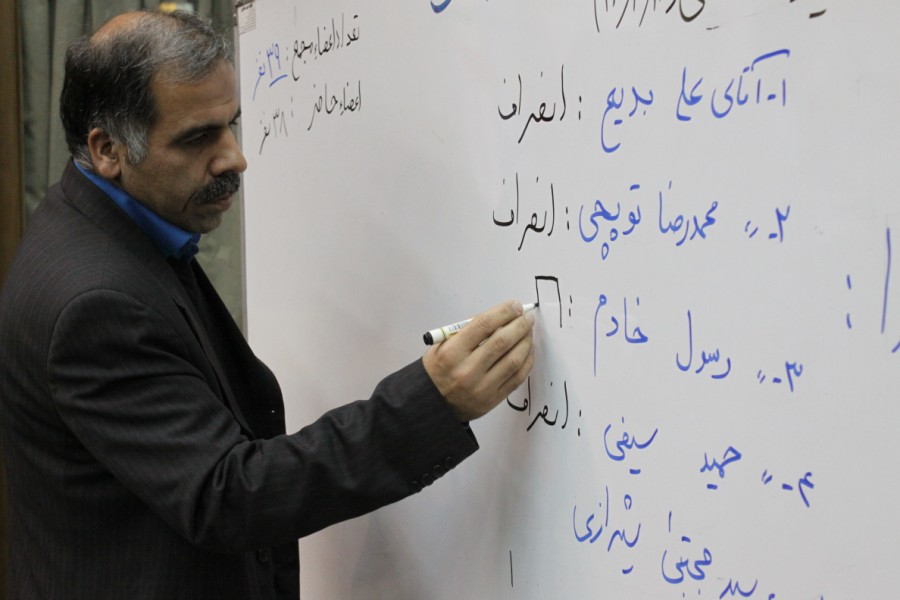 تعداد اعضاء مجمع : ۳۹ نفر
اعضاء حاضر : ۳۸ نفر
۱- آقای علی بدیع : انصراف
۲-〃 محمدرضا توپچی : انصراف
۳- 〃 رسول خادم :
۴- 〃 حمید سیفی : انصراف
سید مجتبی شیرازی